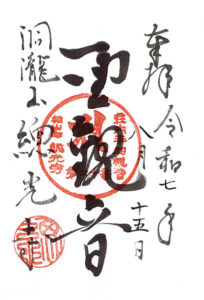 奉拝
令和七年
八月
十五日
聖観音
洞瀧山
總光寺